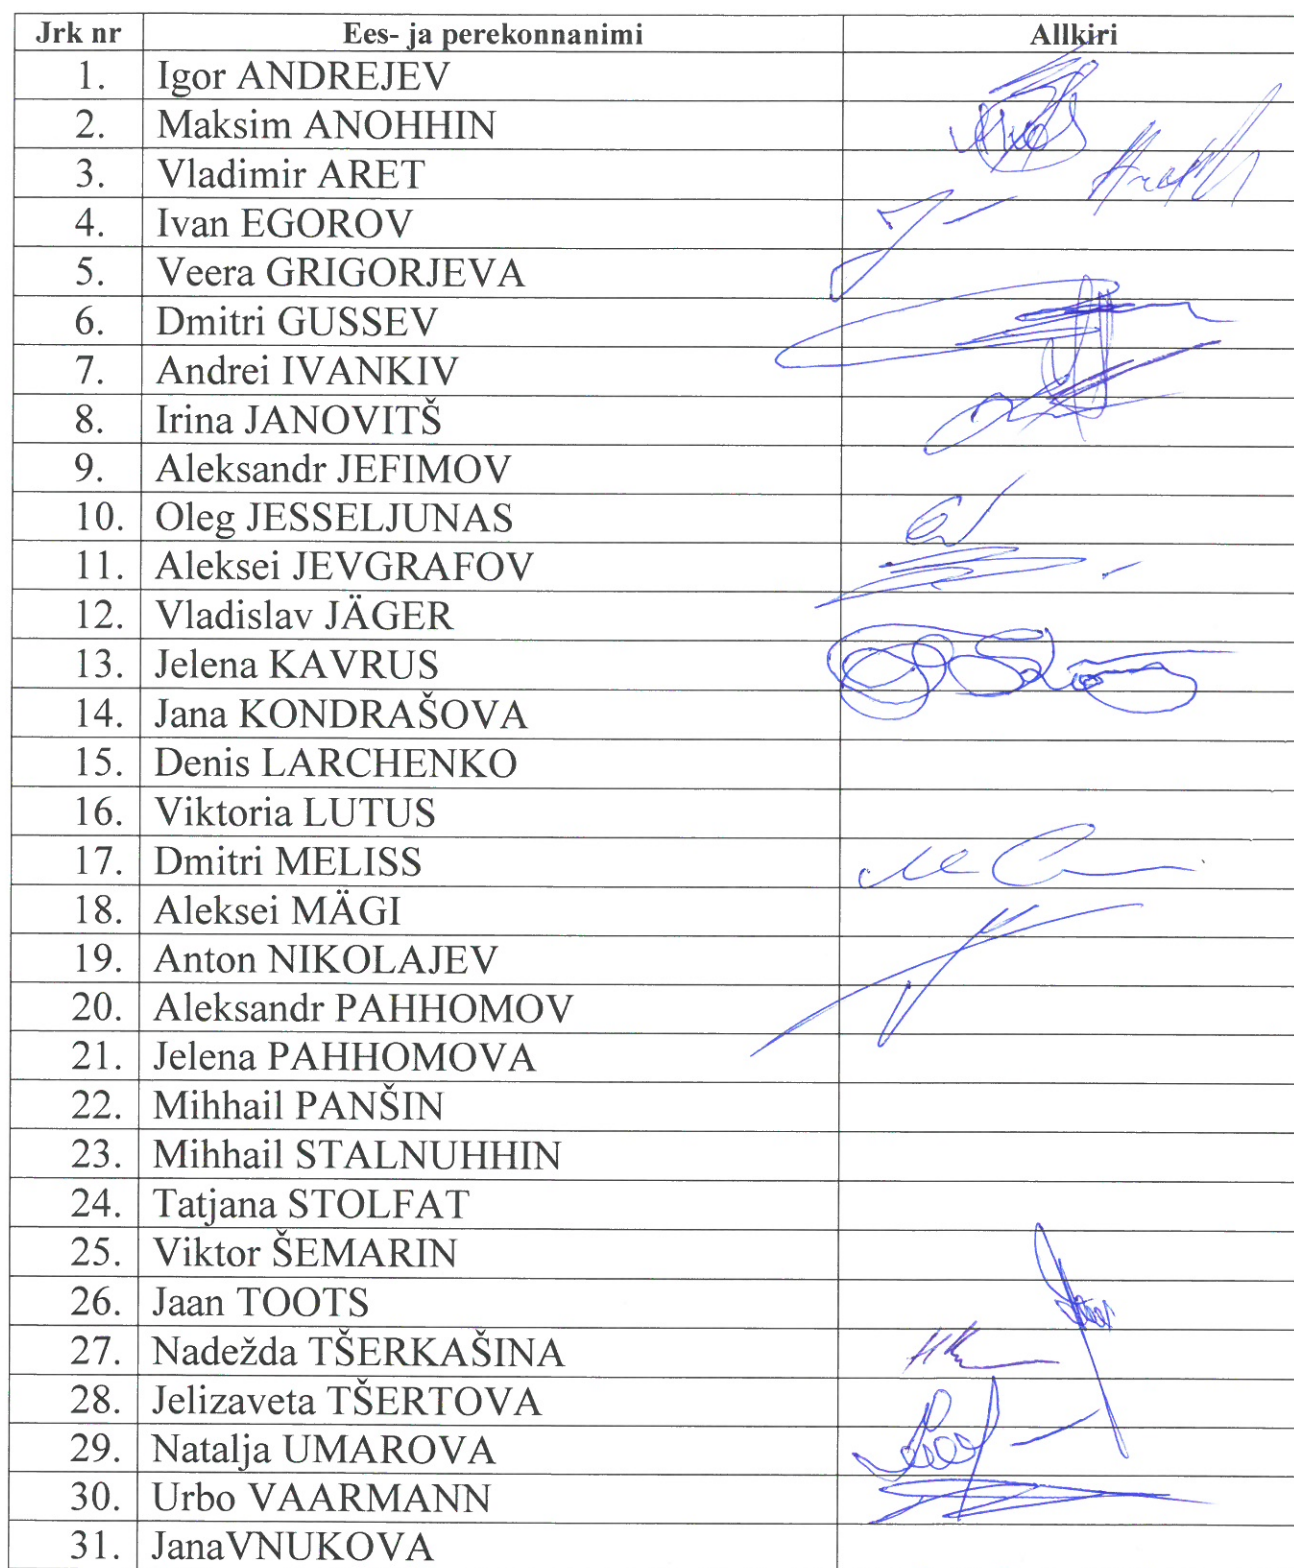 Jrk nr Ees- ja perekonnanimi Allkiri
1. Igor ANDREJEV
2. Maksim ANOHHIN
3. Vladimir ARET
4. Ivan EGOROV
5. Veera GRIGORJEVA
6. Dmitri GUSSEV
7. Andrei IVANKIV
8. Irina JANOVITŠ
9. Aleksandr JEFIMOV
10. Oleg JESSELJUNAS
11. Aleksei JEVGRAFOV
12. Vladislav JÄGER
13. Jelena KAVRUS
14. Jana KONDRAŠOVA
15. Denis LARCHENKO
16. Viktoria LUTUS
17. Dmitri MELISS
18. Aleksei MÄGI
19. Anton NIKOLAJEV
20. Aleksandr PAHHOMOV
21. Jelena PAHHOMOVA
22. Mihhail PANŠIN
23. Mihhail STALNUHHIN
24. Tatjana STOLFAT
25. Viktor ŠEMARIN
26. Jaan TOOTS
27. Nadežda TŠERKAŠINA
28. Jelizaveta TŠERTOVA
29. Natalja UMAROVA
30. Urbo VAARMANN
31. JanaVNUKOVA